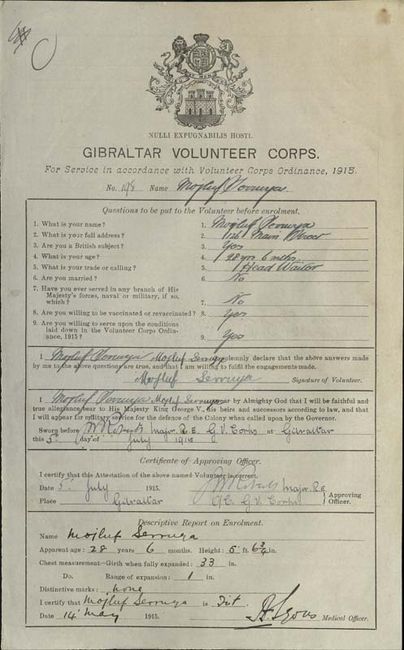 NULLI EXPUGNABILIS HOSTI.
GIBRALTAR VOLUNTEER CORPS.
For Service in accordance with Volunteer Corps Ordinance, 1915.
No. Name Mojluf Serruya
Questions to be put to the Volunteer before enrolment.
1. What is your name? 1. Mojluf Serruya
2. What is your full address? 2. Main Street
3. Are you a British subject? 3. Yes
4. What is your age? 4. 28 yrs 6 mths.
5. What is your trade or calling? 5. Head Waiter
6. Are you married? 6. No
7. Have you ever served in any branch of His
Majesty's forces, naval or military, if so,
which? 7. No
8. Are you willing to be vaccinated or revaccinated? 8. Yes
9. Are you willing to serve upon the conditions
laid down in the Volunteer Corps Ordin-
ance, 1915? 9. Yes
I Mojluf Serruya Mojluf Serruya solemnly declare that the above answers made
by me to the above questions are true, and that I am willing to fulfil the engagements made.
Mojluf Serruya Signature of Volunteer.
I Mojluf Serruya Mojluf Serruya swear by Almighty God that I will be faithful and
true allegiance bear to His Majesty King George V., his heirs and successors according to law, and that
I will appear for military service for the defence of the Colony when called upon by the Governor.
Sworn before W Roberts Major R.E. G.V. Corps at Gibraltar
this 5 day of July 1915
Certificate of Approving Officer.
I certify that this Attestation of the above named Volunteer is correct.
Date 5 July 1915. Roberts Major R.E
Place Gibraltar G.V. Corps Approving Officer.
Descriptive Report on Enrolment.
Name Mojluf Serruya
Apparent age: 28 years 6 months. Height: 5 ft. 6 3/4 in.
Chest measurement—Girth when fully expanded: 33 in.
Do. Range of expansion: 1 in.
Distinctive marks: none
I certify that Mojluf Serruya is Fit.
Date 14 May 1915. Medical Officer.